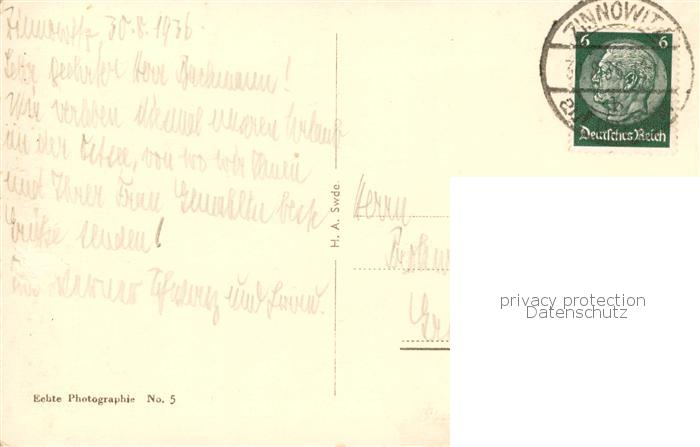 Zinnowitz, 30.8.1936
Sehr geehrter Herr Bachmann!
Wir verleben diesmal unseren Urlaub
an der Ostsee, von wo wir Ihnen
und Ihrer Frau Gemahlin beste
Grüße senden!
Werner und
Echte Photographie No. 5
H. A. Swde.
ZINNOWITZ
6 6
Deutsches Reich
Herrn
privacy protection
Datenschutz